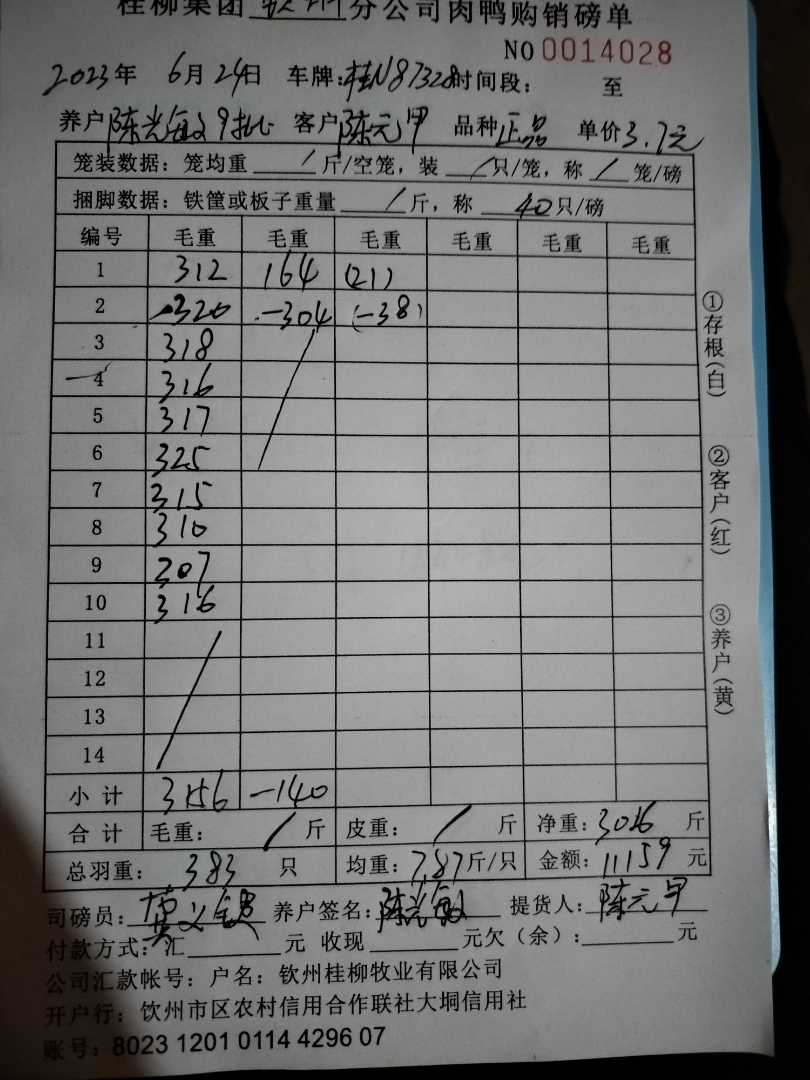 桂柳集团 钦州 分公司肉鸭购销磅单
NO 0014028
2023年 6月24日 车牌:桂N87328时间段: 至
养户陈光敏9批 客户陈元甲 品种正品 单价3.7元
笼装数据: 笼均重 / 斤/空笼, 装 / 只/笼, 称 / 笼/磅
捆脚数据: 铁筐或板子重量 / 斤, 称 40只/磅
编号 毛重 毛重 毛重 毛重 毛重 毛重
1 312 164 (21)
2 320 -304 (-38)
3 318
4 316
5 317
6 325
7 315
8 310
9 307
10 316
11
12
13
14
小计 3156 -140
合计 毛重: / 斤 皮重: / 斤 净重: 3016 斤
总羽重: 383 只 均重: 7.87斤/只 金额: 11159 元
司磅员: 养户签名:陈光敏 提货人:陈元甲
付款方式:汇 元 收现 元欠(余): 元
公司汇款帐号: 户名: 钦州桂柳牧业有限公司
开户行: 饮州市区农村信用合作联社大垌信用社
账号: 8023 1201 0114 4296 07
①存根(白)
②客户(红)
③养户(黄)